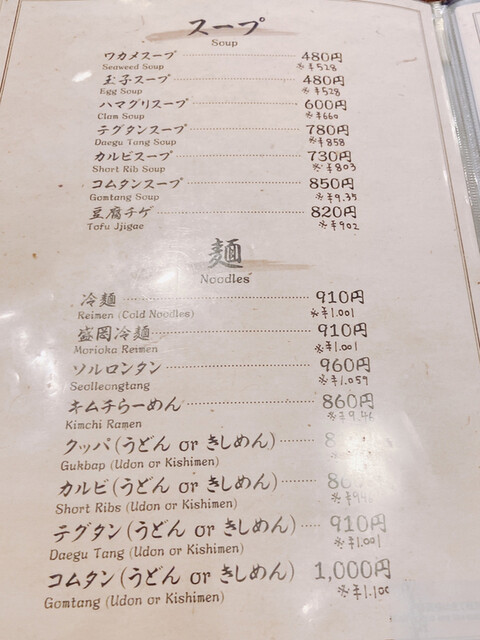 スープ
Soup
ワカメスープ 480円
Seaweed Soup ※¥528
玉子スープ 480円
Egg Soup ※¥528
ハマグリスープ 600円
Clam Soup ※¥660
テグタンスープ 780円
Daegu Tang Soup ※¥858
カルビスープ 730円
Short Rib Soup ※¥803
コムタンスープ 850円
Gomtang Soup ※¥9.35
豆腐チゲ 820円
Tofu Jjigae ※¥902
麺
Noodles
冷麺 910円
Reimen (Cold Noodles) ※¥1.001
盛岡冷麺 910円
Morioka Reimen ※¥1.001
ソルロンタン 960円
Seolleongtang ※¥1.059
キムチらーめん 860円
Kimchi Ramen ※¥9.46
クッパ(うどん or きしめん)
Gukbap (Udon or Kishimen)
カルビ(うどん or きしめん)
Short Ribs (Udon or Kishimen)
テグタン(うどん or きしめん) 910円
Daegu Tang (Udon or Kishimen) ※¥1.001
コムタン(うどん or きしめん) 1,000円
Gomtang (Udon or Kishimen) ※¥1.100